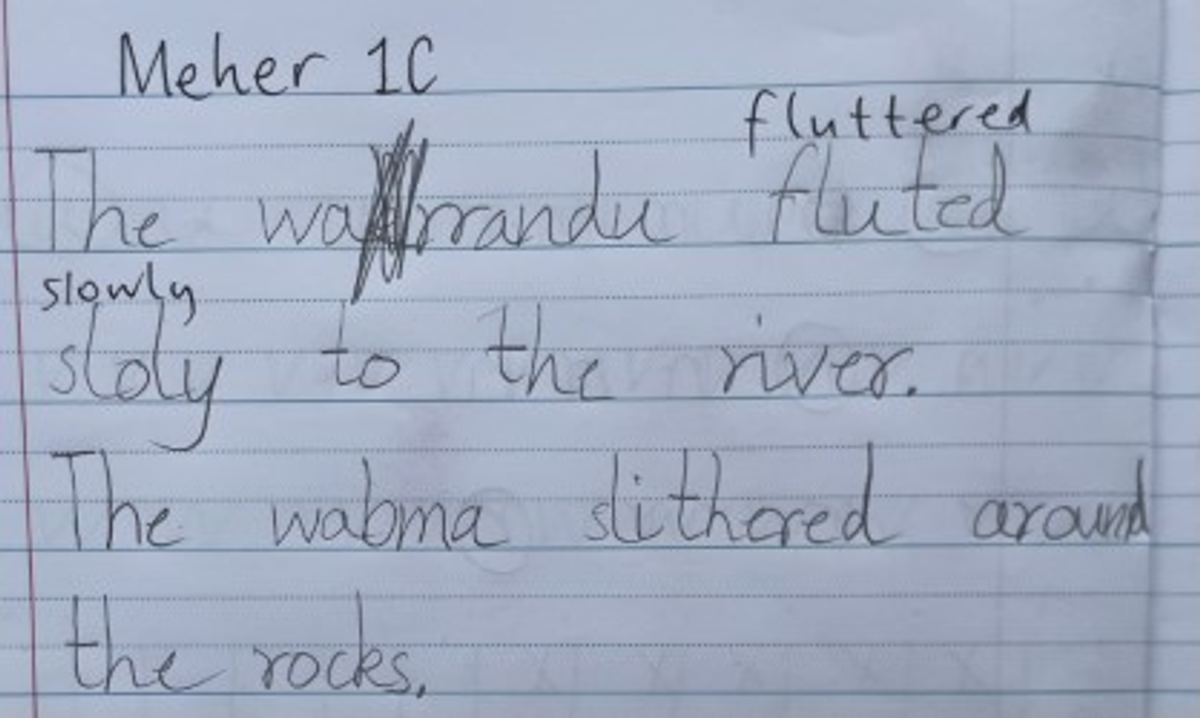 Meher 1C
fluttered
The warrandu fluted
slowly
sloly to the river.
The wabma slithered around
the rocks.